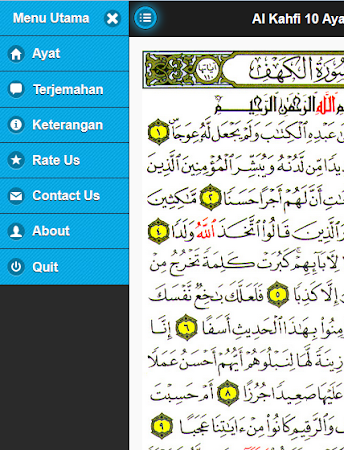 Menu Utama
Ayat
Terjemahan
Keterangan
Rate Us
Contact Us
About
Quit
Al Kahfi 10 Aya
سُورَةُ الْكَهْفِ
ٱللَّهِ ٱلرَّحْمَٰنِ ٱلرَّحِيمِ
عَبْدِهِ ٱلْكِتَٰبَ وَلَمْ يَجْعَل لَّهُۥ عِوَجَاۜ ١
دِيدًا مِّن لَّدُنْهُ وَيُبَشِّرَ ٱلْمُؤْمِنِينَ ٱلَّذِينَ
تِ أَنَّ لَهُمْ أَجْرًا حَسَنًا ٢ مَّٰكِثِينَ
ٱلَّذِينَ قَالُوا۟ ٱتَّخَذَ ٱللَّهُ وَلَدًا ٤
لِءَابَآئِهِمْ كَبُرَتْ كَلِمَةً تَخْرُجُ مِنْ
إِلَّا كَذِبًا ٥ فَلَعَلَّكَ بَٰخِعٌ نَّفْسَكَ
مِنُوا۟ بِهَٰذَا ٱلْحَدِيثِ أَسَفًا ٦ إِنَّا
زِينَةً لَّهَا لِنَبْلُوَهُمْ أَيُّهُمْ أَحْسَنُ عَمَلًا
عَلَيْهَا صَعِيدًا جُرُزًا ٨ أَمْ حَسِبْتَ
وَٱلرَّقِيمِ كَانُوا۟ مِنْ ءَايَٰتِنَا عَجَبًا ٩